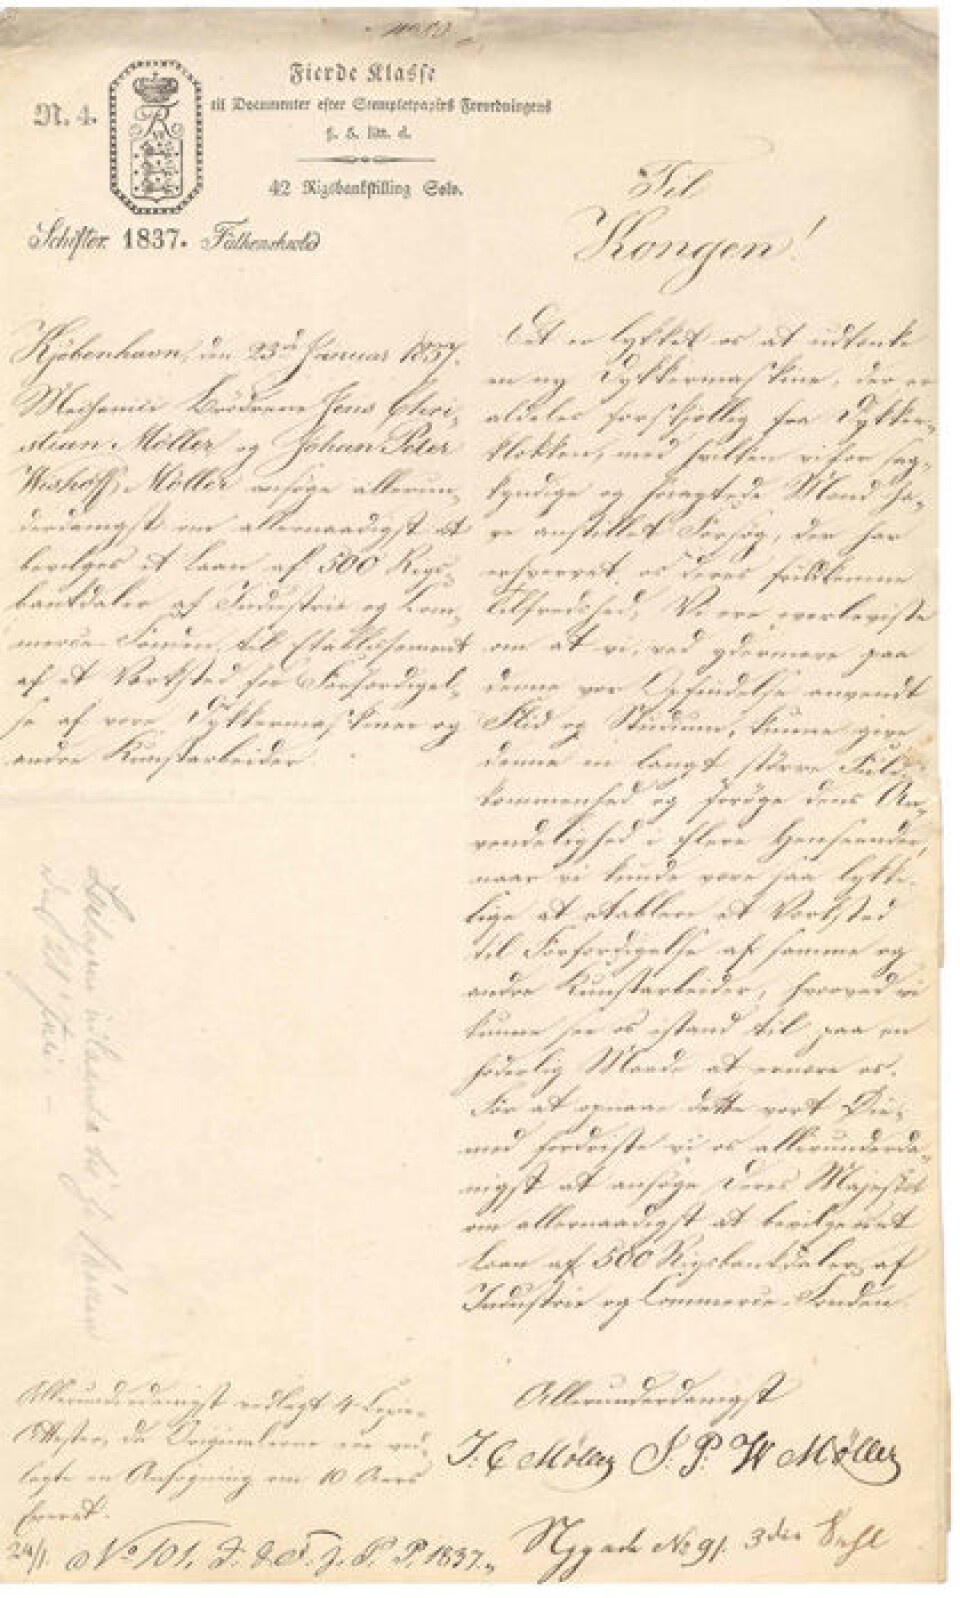 N. 4.
Fierde Klasse
til Documenter efter Stempletpapirs Forordningens
§. 5. litt. d.
42 Rigsbankskilling Sølv.
Schifter. 1837. Falkenskiold
Til
Kongen!
Kjöbenhavn, den 23de Januar 1837.
Mechanici Brödrene Jens Chri-
stian Möller og Johan Peter
Möller ansöge allerun-
derdanigst om allernaadigst at
bevilges et Laan af 500 Rigs-
bankdaler af Industrie og Com-
merce Fonden, til Etablissement
af et Værksted for Forfærdigel-
se af vore Dykkermaskiner og
andre Kunstarbeider
Det er lykket os at udtænke
en ny Dykkermaskine, der er
aldeles forskjellig fra Dykker-
klokken, med hvilken vi for sag-
kyndige og Mænd ha-
ve anstillet Forsög, der har
erhvervet os deres fuldkomne
Tilfredshed. Vi ere overbeviste
om at vi, ved ydermere paa
denne vor Opfindelse anvendt
Flid og Studium, kunne give
denne en langt större Fuld-
kommenhed og foröge dens An-
vendelighed i flere Henseender,
naar vi kunde være saa lykke-
lige at etablere et Værksted
til Forfærdigelse af samme og
andre Kunstarbeider, hvorved vi
kunne see os istand til paa en
hæderlig Maade at ernære os.
For at opnaae dette vort Öie-
med fordriste vi os allerunderda-
nigst at ansöge Deres Majestæt
om allernaadigst at bevilges et
Laan af 500 Rigsbankdaler af
Industrie og Commerce-Fonden.
Allerunderdanigst
J. C Möller J. P. W Möller
Nygade No 91. 3die Sahl
Allerunderdanigst vedlagt 4 Copie-
Attester, da Originalerne ere ved-
lagte en Ansögning om 10 Aars
Eneret.
24/1 No 101. 1837.